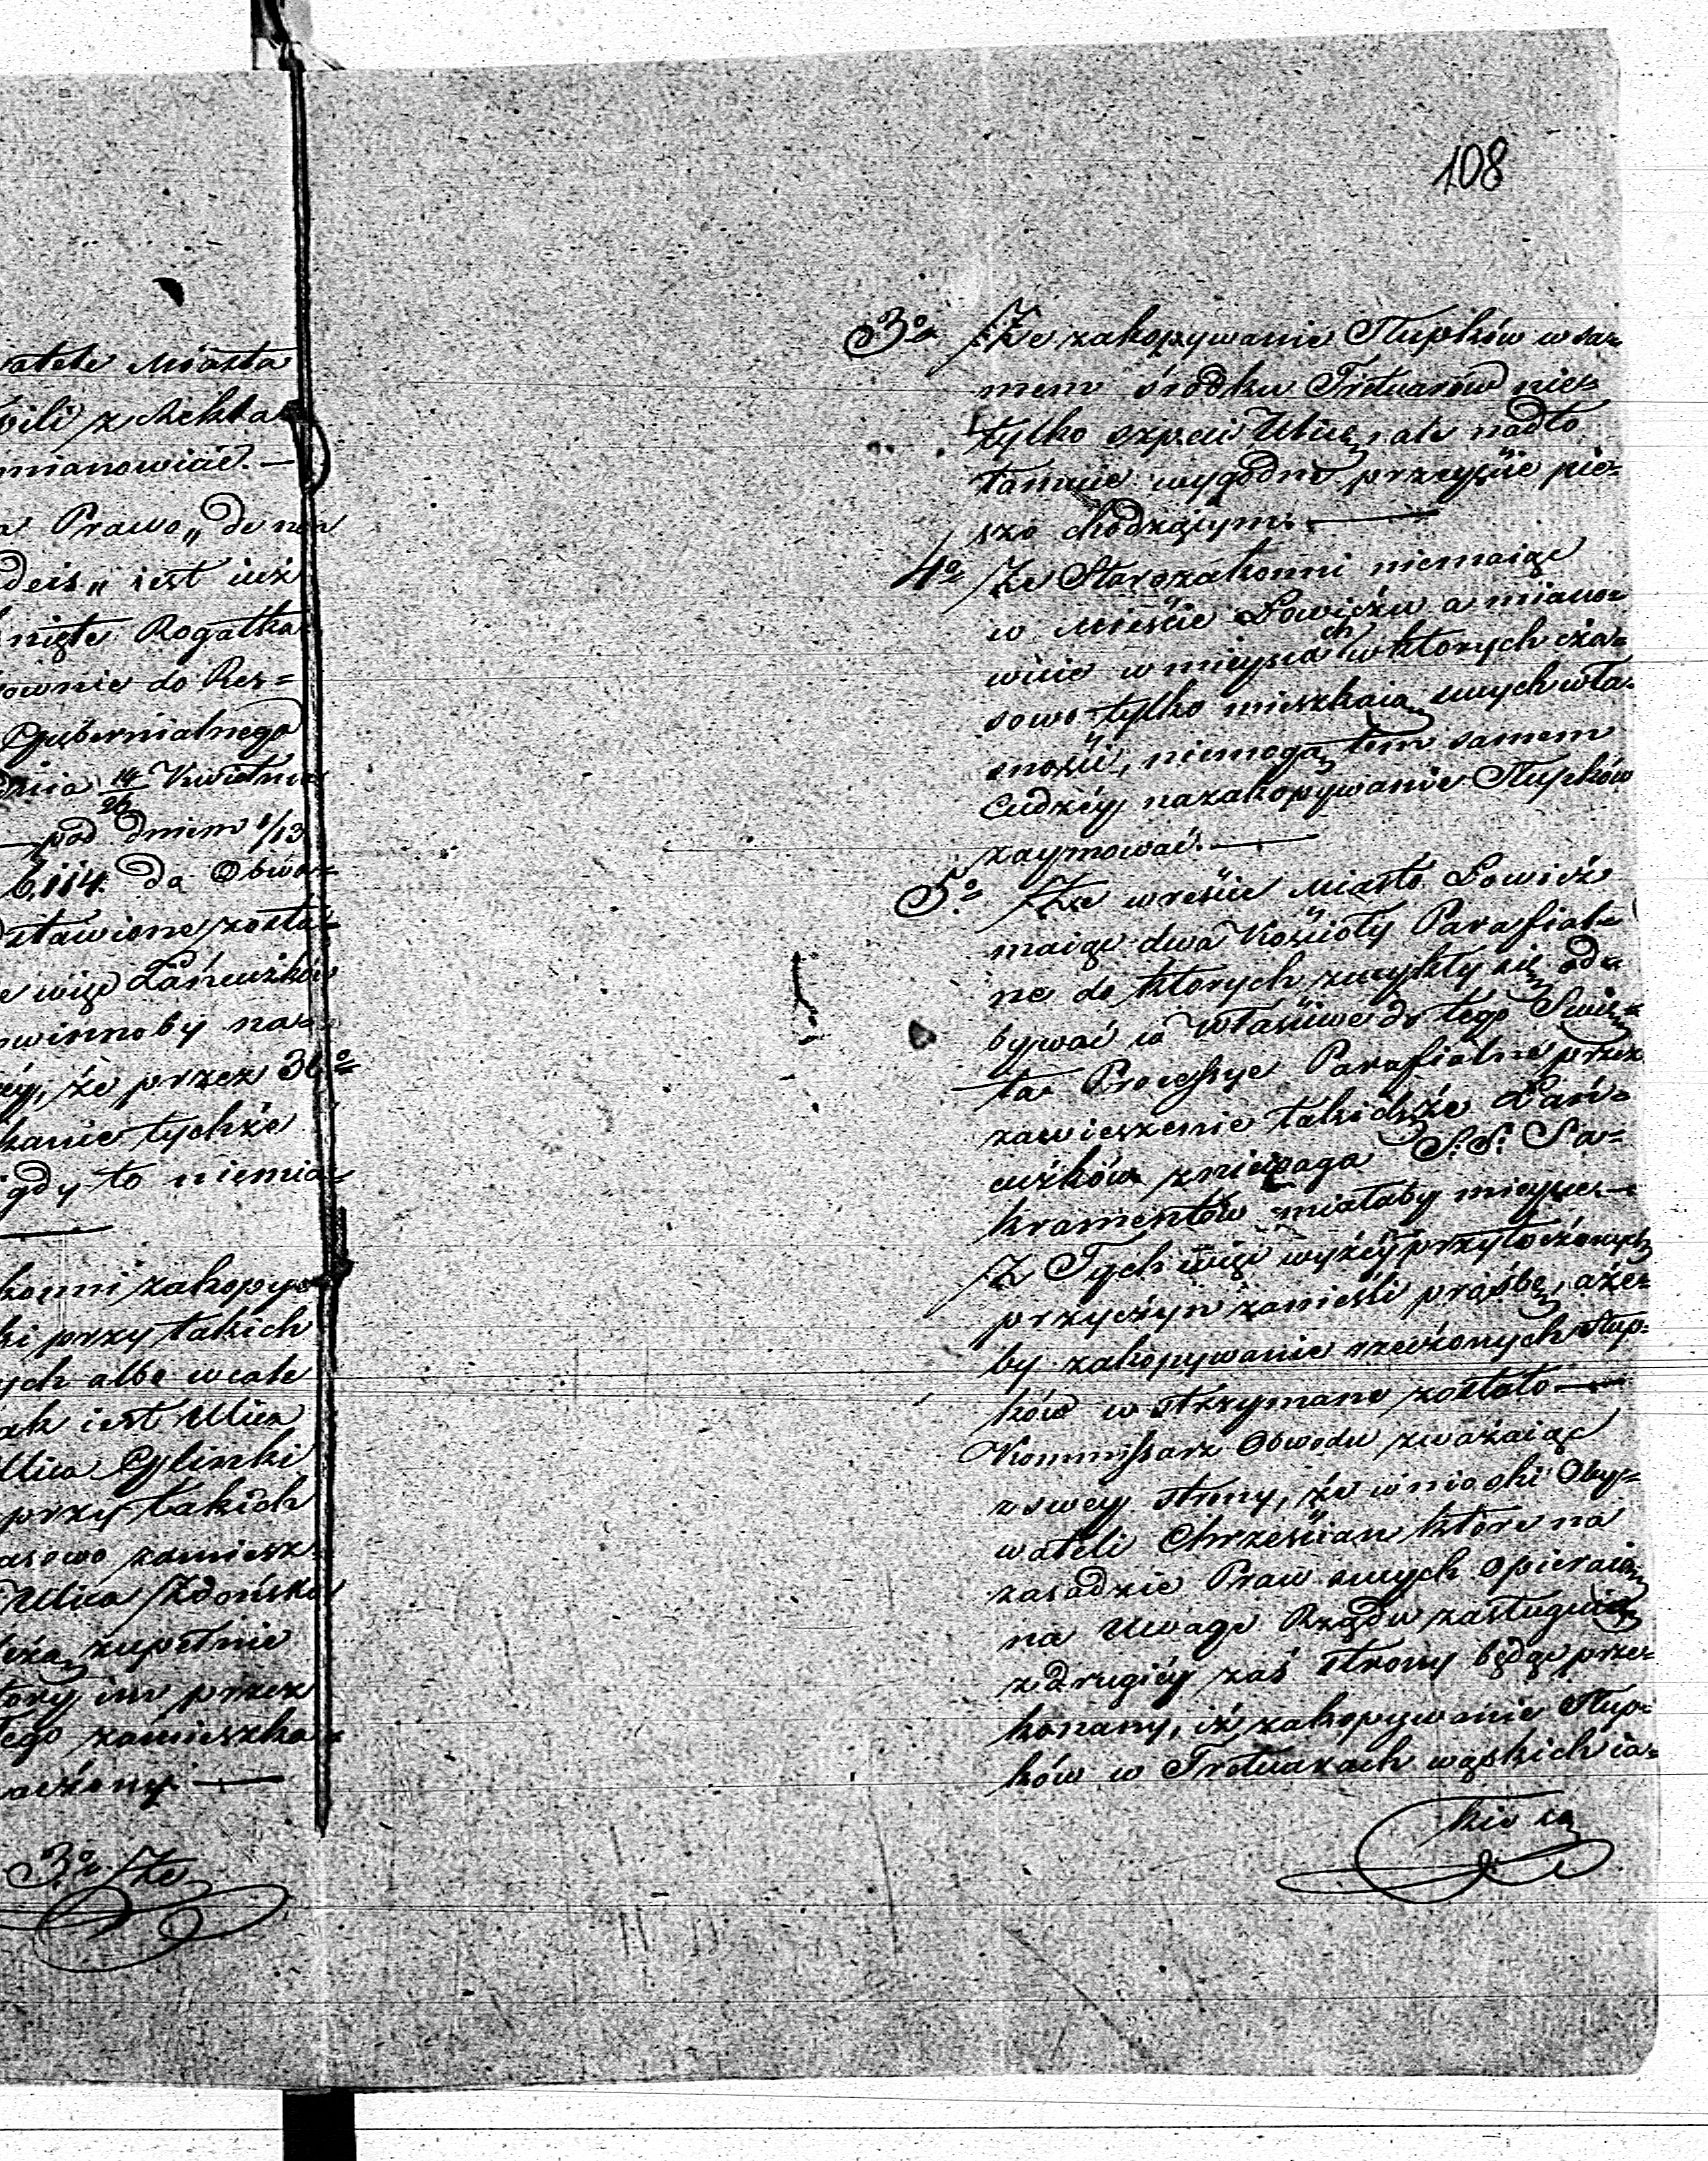 108
watele Miasta
wili z Mekła=
mianowicie. —
a Prawo „ de non
deis „ iest iuż
nięte Rogatka
sownie do Res=
Gubernialnego
dnia 14/26 Kwietnia
— pod dniem 1/13
6,114. da Obwo=
stawione zosta=
e więc Łańcużków
winnoby na=
ey, że przez 36°
kanie tychże
gdy to niemia=
konni zakopy=
ki przy takich
ych albo wcale
ak iest Ulica
Ulica Glinki
przy takich
asowo zamiesz=
Ulica Zdońska
leżą zupełnie
tory im przez
tego zamieszka=
aczony. —
3° Że
3° Że zakopywanie Słupków w sa=
mem środku Trotuarów nie=
tylko szpeci Ulicę, ale nadto
tamuie wygodne przeyście pie=
szo chodzącym. —
4° Że Starozakonni niemaiąc
w Mieście Łowiczu a miano=
wicie w mieysca ch w ktorych cza=
sowo tylko mieszkaią swych wła=
sności, niemogą tem samem
Cudzéy na zakopywanie Słupków
zaymować. —
5° Że wreście Miasto Łowicz
maiąc dwa Kościoły Parafial=
ne do ktorych zwykły się od=
bywać w właściwe do tego Świę=
ta Processye Parafialne przez
zawieszenie takichże Łań=
cużków zniewaga S. S. Sa=
kramentów miałaby mieysce. —
Z Tych więc wyżéy przytoczonych
przyczyn zanieśli prośbę, aże=
by zakopywanie rzeczonych Słup=
ków wstrzymane zostało —
Kommissarz Obwodu zważaiąc
z swey strony, że wnioski Oby=
wateli Chrześcian które na
zasadzie Praw swych opieraią
na Uwagę Rządu zasługuią
z drugiéy zaś strony będąc prze=
konany, iż zakopywanie Słup=
ków w Trotuarach wązkich ia=
kie są